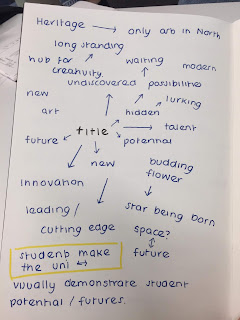 Heritage → only arb in North
long standing
hub for ↗ waiting modern
creativity
undiscovered possibilities
new
lurking
art hidden
title → talent
future potential
new budding
flower
Innovation
leading / star being born
cutting edge space?
students make future
the uni ↔
visually demonstrate student
potential / futures.